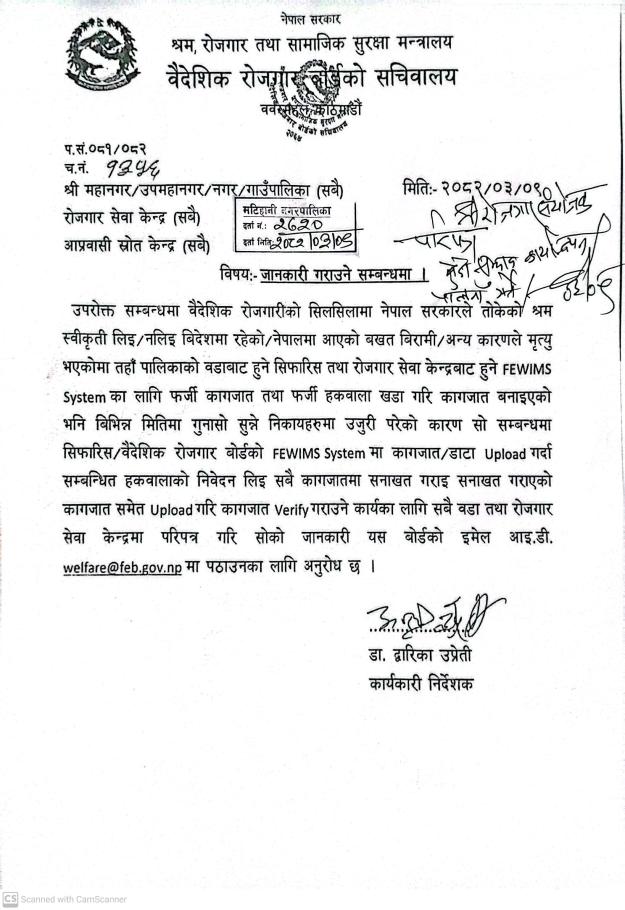 नेपाल सरकार
श्रम, रोजगार तथा सामाजिक सुरक्षा मन्त्रालय
वैदेशिक रोजगार बोर्डको सचिवालय
काठमाडौं
प.सं.०८१/०८२
च.नं. १३५६
श्री महानगर/उपमहानगर/नगर/गाउँपालिका (सबै)
मिति:- २०८२/०३/०९
रोजगार सेवा केन्द्र (सबै)
आप्रवासी स्रोत केन्द्र (सबै)
मटिहानी नगरपालिका
दर्ता नं.: २६२०
दर्ता मिति: २०८२/०३/०९
श्री रोजगार संयोजक
विषय:- जानकारी गराउने सम्बन्धमा ।
उपरोक्त सम्बन्धमा वैदेशिक रोजगारीको सिलसिलामा नेपाल सरकारले तोकेको श्रम
स्वीकृती लिइ/नलिइ विदेशमा रहेको/नेपालमा आएको बखत विरामी/अन्य कारणले मृत्यु
भएकोमा तहाँ पालिकाको वडाबाट हुने सिफारिस तथा रोजगार सेवा केन्द्रबाट हुने FEWIMS
System का लागि फर्जी कागजात तथा फर्जी हकवाला खडा गरि कागजात बनाइएको
भनि विभिन्न मितिमा गुनासो सुन्ने निकायहरुमा उजुरी परेको कारण सो सम्बन्धमा
सिफारिस/वैदेशिक रोजगार बोर्डको FEWIMS System मा कागजात/डाटा Upload गर्दा
सम्बन्धित हकवालाको निवेदन लिइ सबै कागजातमा सनाखत गराइ सनाखत गराएको
कागजात समेत Upload गरि कागजात Verify गराउने कार्यका लागि सबै वडा तथा रोजगार
सेवा केन्द्रमा परिपत्र गरि सोको जानकारी यस बोर्डको इमेल आइ.डी.
welfare@feb.gov.np मा पठाउनका लागि अनुरोध छ ।
डा. द्वारिका उप्रेती
कार्यकारी निर्देशक
CS Scanned with CamScanner